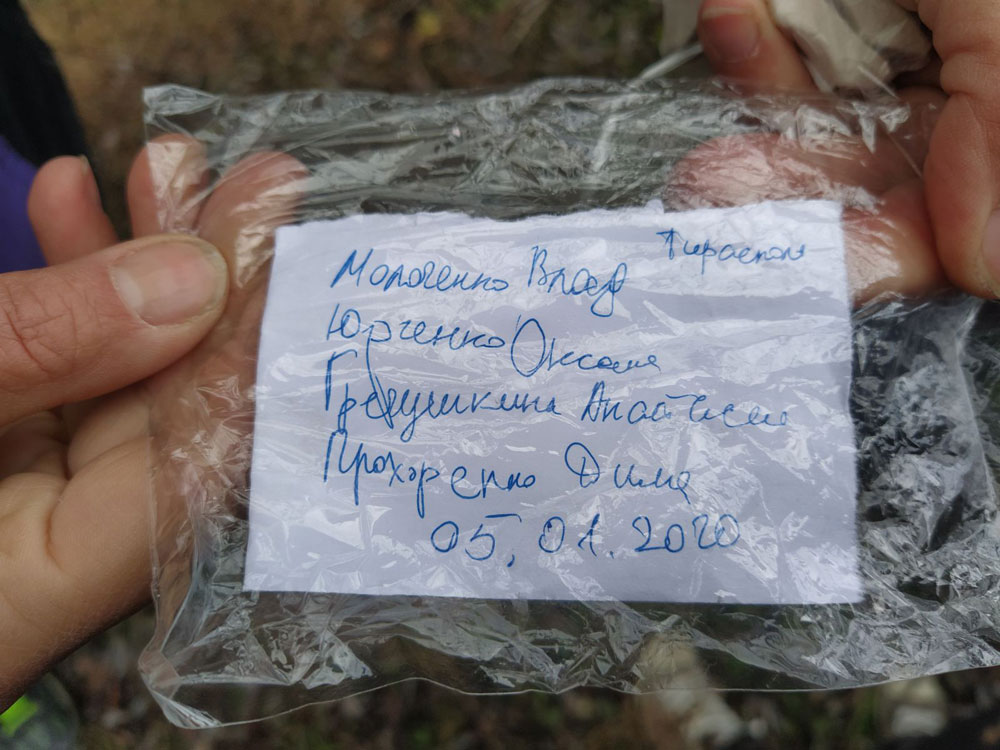 Тирасполь
Молоченко Влад
Юрченко Оксана
Гредушкина Анастасия
Прохоренко Дима
05.01.2020